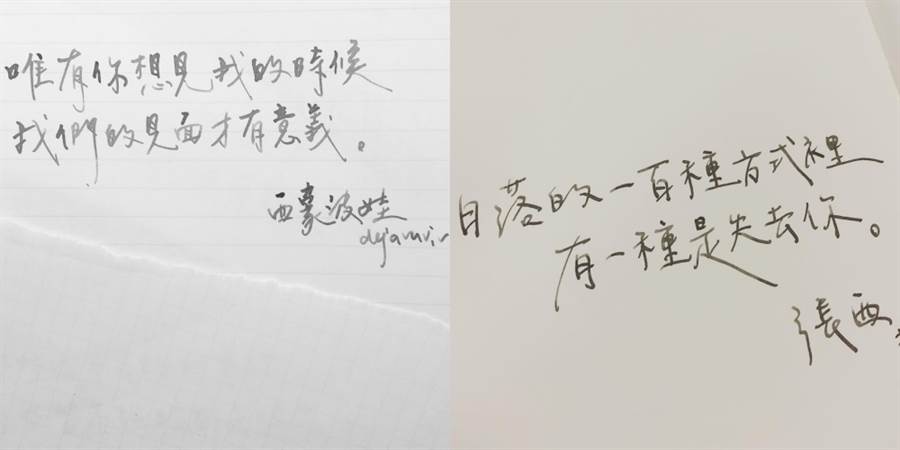 唯有你想見我的時候
我們的見面才有意義。
西蒙波娃
日落的一百種方式裡
有一種是失去你。
張西